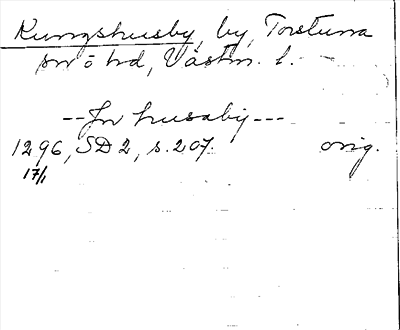 Kungshusby, by, Torstuna
sn o hd, Västm. l.
--Jn husaby---
1296, SD 2, s. 207. orig.
17/1